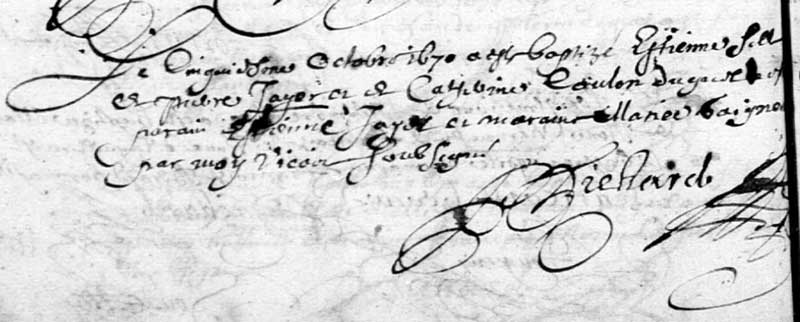 Le cinquiesme Octobre 1670 a este baptize Estienne fils
de pierre Jayer et de Catherine Coulon
parain Estienne Jayer et maraine Marie
par moy vicaire soubsigné
Richard